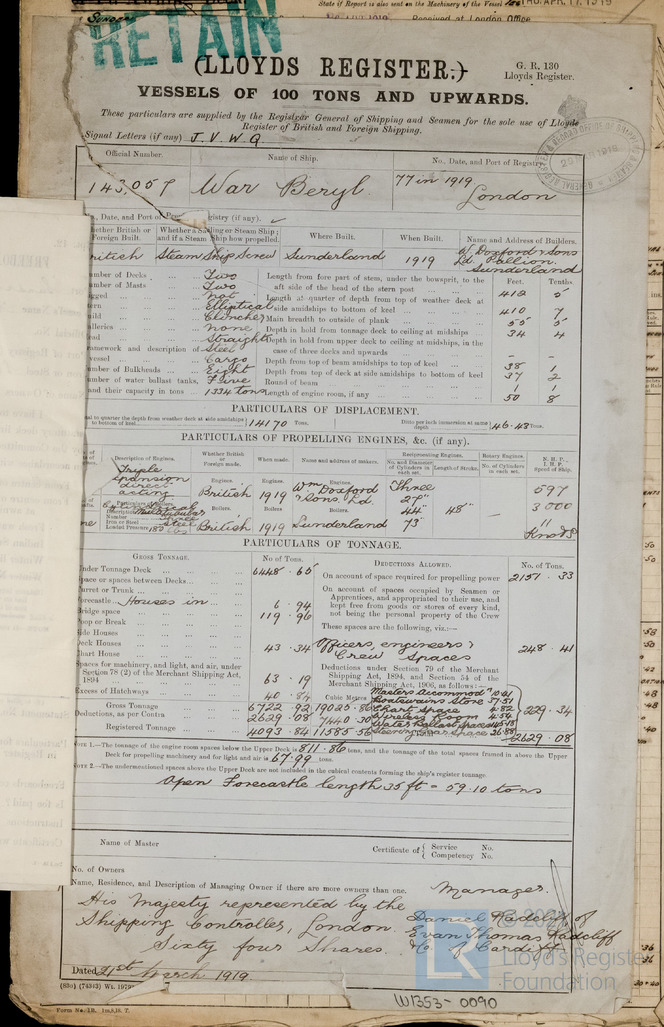 State if Report is also sent on the Machinery of the Vessel
THU. APR. 17. 1919
Received at London Office
RETAIN
(LLOYDS REGISTER.)
G. R. 130
Lloyds Register.
VESSELS OF 100 TONS AND UPWARDS.
These particulars are supplied by the Registrar General of Shipping and Seamen for the sole use of Lloyds
Register of British and Foreign Shipping.
Signal Letters (if any) J. V. W. Q.
Official Number. Name of Ship. No., Date, and Port of Registry
143,057 War Beryl 77 in 1919
London
, Date, and Port of Registry (if any).
Whether British or Foreign Built. Whether a Sailing or Steam Ship; and if a Steam Ship how propelled. Where Built. When Built. Name and Address of Builders.
British Steam Ship Screw Sunderland 1919 W. Doxford & Sons
Ld. Pallion.
Sunderland
Feet. Tenths
Number of Decks Two Length from fore part of stem, under the bowsprit, to the
aft side of the head of the stern post 412 5
Number of Masts Two
Rigged not Length at quarter of depth from top of weather deck at
side amidships to bottom of keel 410 7
Stern Elliptical
Build Clencher Main breadth to outside of plank 55 5
Galleries none Depth in hold from tonnage deck to ceiling at midships 34 4
Head Straight Depth in hold from upper deck to ceiling at midships, in the
case of three decks and upwards - -
Framework and description of vessel Steel Cargo
Depth from top of beam amidships to top of keel 38 1
Number of Bulkheads Eight Depth from top of deck at side amidships to bottom of keel 37 2
Number of water ballast tanks, Five Round of beam 1 1
and their capacity in tons 1334 tons Length of engine room, if any 50 8
PARTICULARS OF DISPLACEMENT.
Total to quarter the depth from weather deck at side amidships to bottom of keel 14170 Tons. Ditto per inch immersion at same depth 46.43 Tons.
PARTICULARS OF PROPELLING ENGINES, &c. (if any).
Description of Engines. Whether British or Foreign made. When made. Name and address of makers. Reciprocating Engines. No. and Diameter of Cylinders in each set. Length of Stroke. Rotary Engines. No. of Cylinders in each set. N. H. P. I. H. P. Speed of Ship.
Triple
expansion
direct
acting
Engines. British Engines. 1919 Engines. Wm Doxford
& Sons. Ld.
Three
27"
44" 48" -
73"
597
3000
11
Knots
Description Cylindrical Multitubular
Number Three
Iron or Steel Steel
Loaded Pressure 180 lbs
Boilers. British Boilers. 1919 Boilers. Sunderland
PARTICULARS OF TONNAGE.
GROSS TONNAGE. No. of Tons. DEDUCTIONS ALLOWED. No. of Tons.
Under Tonnage Deck 6448.65
On account of space required for propelling power 2151.33
Space or spaces between Decks
Turret or Trunk
Forecastle Houses in 6.94
Bridge space 119.96
Poop or Break
Side Houses
Deck Houses 43.34
Chart House
Spaces for machinery, and light, and air, under
Section 78 (2) of the Merchant Shipping Act,
1894 63.19
Excess of Hatchways 40.84
On account of spaces occupied by Seamen or
Apprentices, and appropriated to their use, and
kept free from goods or stores of every kind,
not being the personal property of the Crew
These spaces are the following, viz.:—
Officers, engineers &
Crew Spaces 248.41
Deductions under Section 79 of the Merchant
Shipping Act, 1894, and Section 54 of the
Merchant Shipping Act, 1906, as follows:—
Masters Accommodn 10.41
Boatswains Store 57.51
Chart Space 4.82
Wireless Room 4.54
Water Ballast Space
Steering Gear Space 36.88
229.34
2629.08
Cubic Metres.
Gross Tonnage 6722.92 19025.86
Deductions, as per Contra 2629.08 7440.30
Registered Tonnage 4093.84 11585.56
NOTE 1.—The tonnage of the engine room spaces below the Upper Deck is 811.86 tons, and the tonnage of the total spaces framed in above the Upper
Deck for propelling machinery and for light and air is 67.99 tons.
NOTE 2.—The undermentioned spaces above the Upper Deck are not included in the cubical contents forming the ship's register tonnage.
Open Forecastle length 35 ft = 59.10 tons
Name of Master Certificate of { Service No.
Competency No.
No. of Owners
Name, Residence, and Description of Managing Owner if there are more owners than one. Manager.
His Majesty represented by the
Shipping Controller, London.
Sixty four Shares.
Daniel Radcliff of
Evan Thomas Radcliff
& Co. of Cardiff
Dated 21st March 1919.
Form No. 1B.
W1353-0090
© 202
Lloyd's Register
Foundation
LR